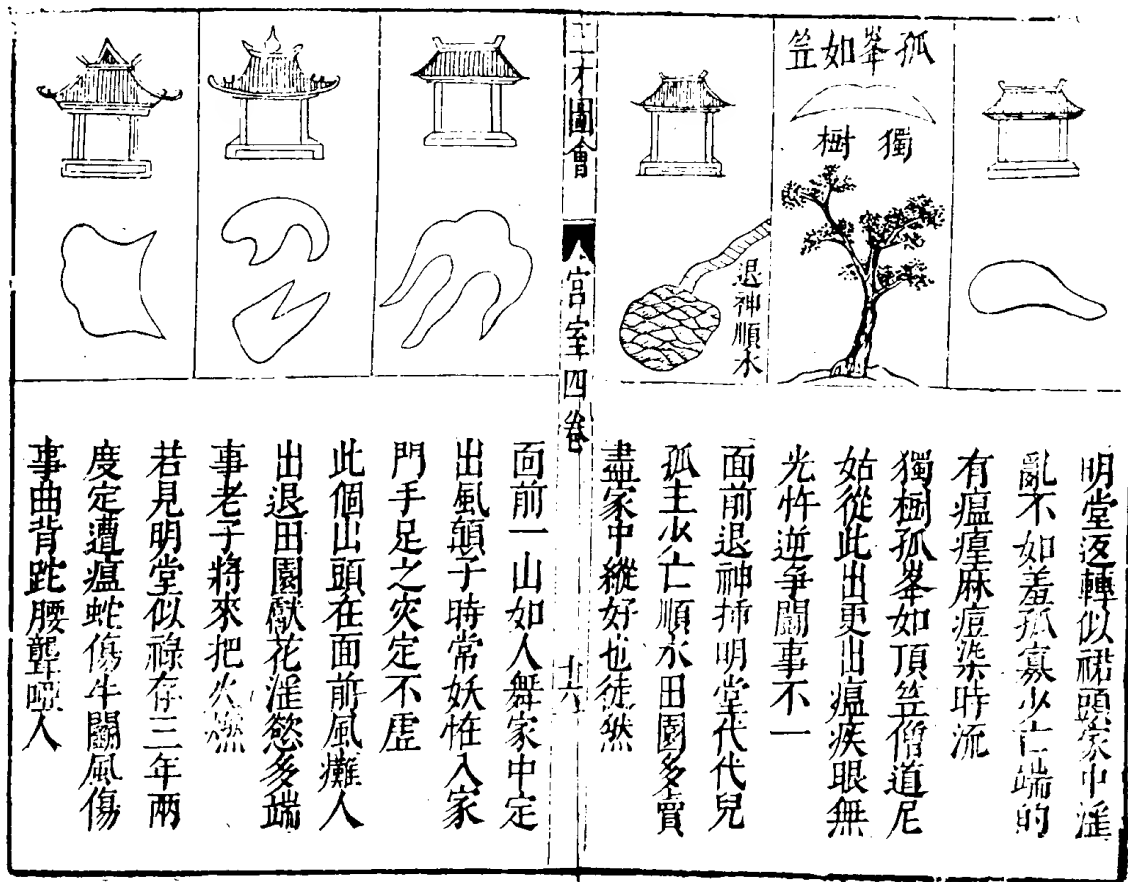 孤峯如笠
獨樹
退神順水
明堂返轉似裙頭家中淫
亂不如羞孤寡少亡端的
有瘟𤺥麻痘染時流
獨樹孤峯如頂笠僧道尼
姑從此出更出瘟疾眼無
光忤逆爭鬪事不一
面前退神揷明堂代代兒
孤主少亡順水田園多賣
盡家中縱好也徒然
三才圖會
宮室四卷
十六
面前一山如人舞家中定
出風顛子時常妖怪入家
門手足之灾定不虛
此個出頭在面前風癱人
出退田園獻花淫慾多端
事老子將來把火燃
若見明堂似祿存三年兩
度定遭瘟蛇傷牛鬭風傷
事曲背跎腰聾啞人